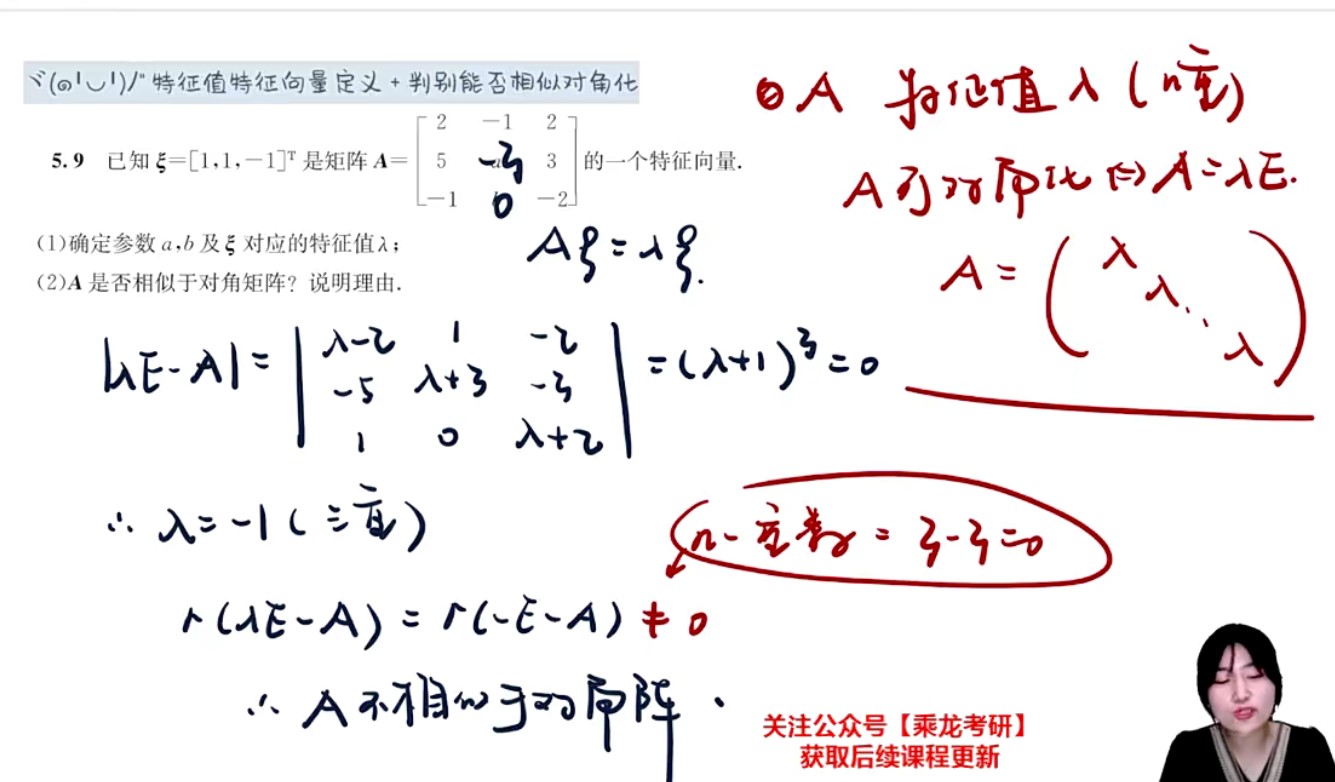 ヾ(๑╹◡╹)ﾉ" 特征值特征向量定义 + 判别能否相似对角化
5.9 已知 ξ=[1,1,-1]ᵀ 是矩阵 A= [2 -1 2
5 -3 3
-1 0 -2] 的一个特征向量.
(1)确定参数 a,b 及 ξ 对应的特征值 λ;
(2)A 是否相似于对角矩阵? 说明理由.
Aξ = λξ.
|λE-A| = | λ-2 1 -2
-5 λ+3 -3
1 0 λ+2 | = (λ+1)³ = 0
∴ λ = -1 (三重)
n - 重数 = 3-3=0
r(λE-A) = r(-E-A) ≠ 0
∴ A 不相似于对角阵.
A 特征值 λ (n重)
A 可对角化 ⇔ A=λE.
A = ( λ
λ
⋱
λ )
关注公众号【乘龙考研】
获取后续课程更新